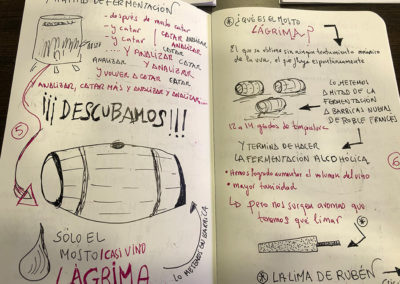 DE FERMENTACIÓN
- después de mucho catar
- y catar CATAR ANALIZAR
- y catar ANALIZAR
CATAR
Y ANALIZAR CATAR
ANALIZAR Y ANALIZAR
Y VOLVER A CATAR CATAR
ANALIZAR, CATAR MÁS Y ANALIZAR Y ANALIZAR....
¡¡¡DESCUBAMOS!!!
5
SÓLO EL
MOSTO/CASI VINO
LÁGRIMA
LO METEMOS EN BARRICA
* ¿QUÉ ES EL MOSTO
LÁGRIMA?
El que se obtiene sin ningún
de la uva, el que fluye espontáneamente
LO METEMOS
A MITAD DE LA
FERMENTACIÓN
A BARRICAS NUEVAS
DE ROBLE FRANCÉS
12 a 14 grados de temperatura
Y TERMINA DE HACER
LA FERMENTACIÓN ALCOHÓLICA
• Hemos logrado aumentar el volumen del vino
• mayor tanicidad
↳ pero nos surgen aromas que
tenemos que limar
6
*
* LA LIMA DE RUBÉN